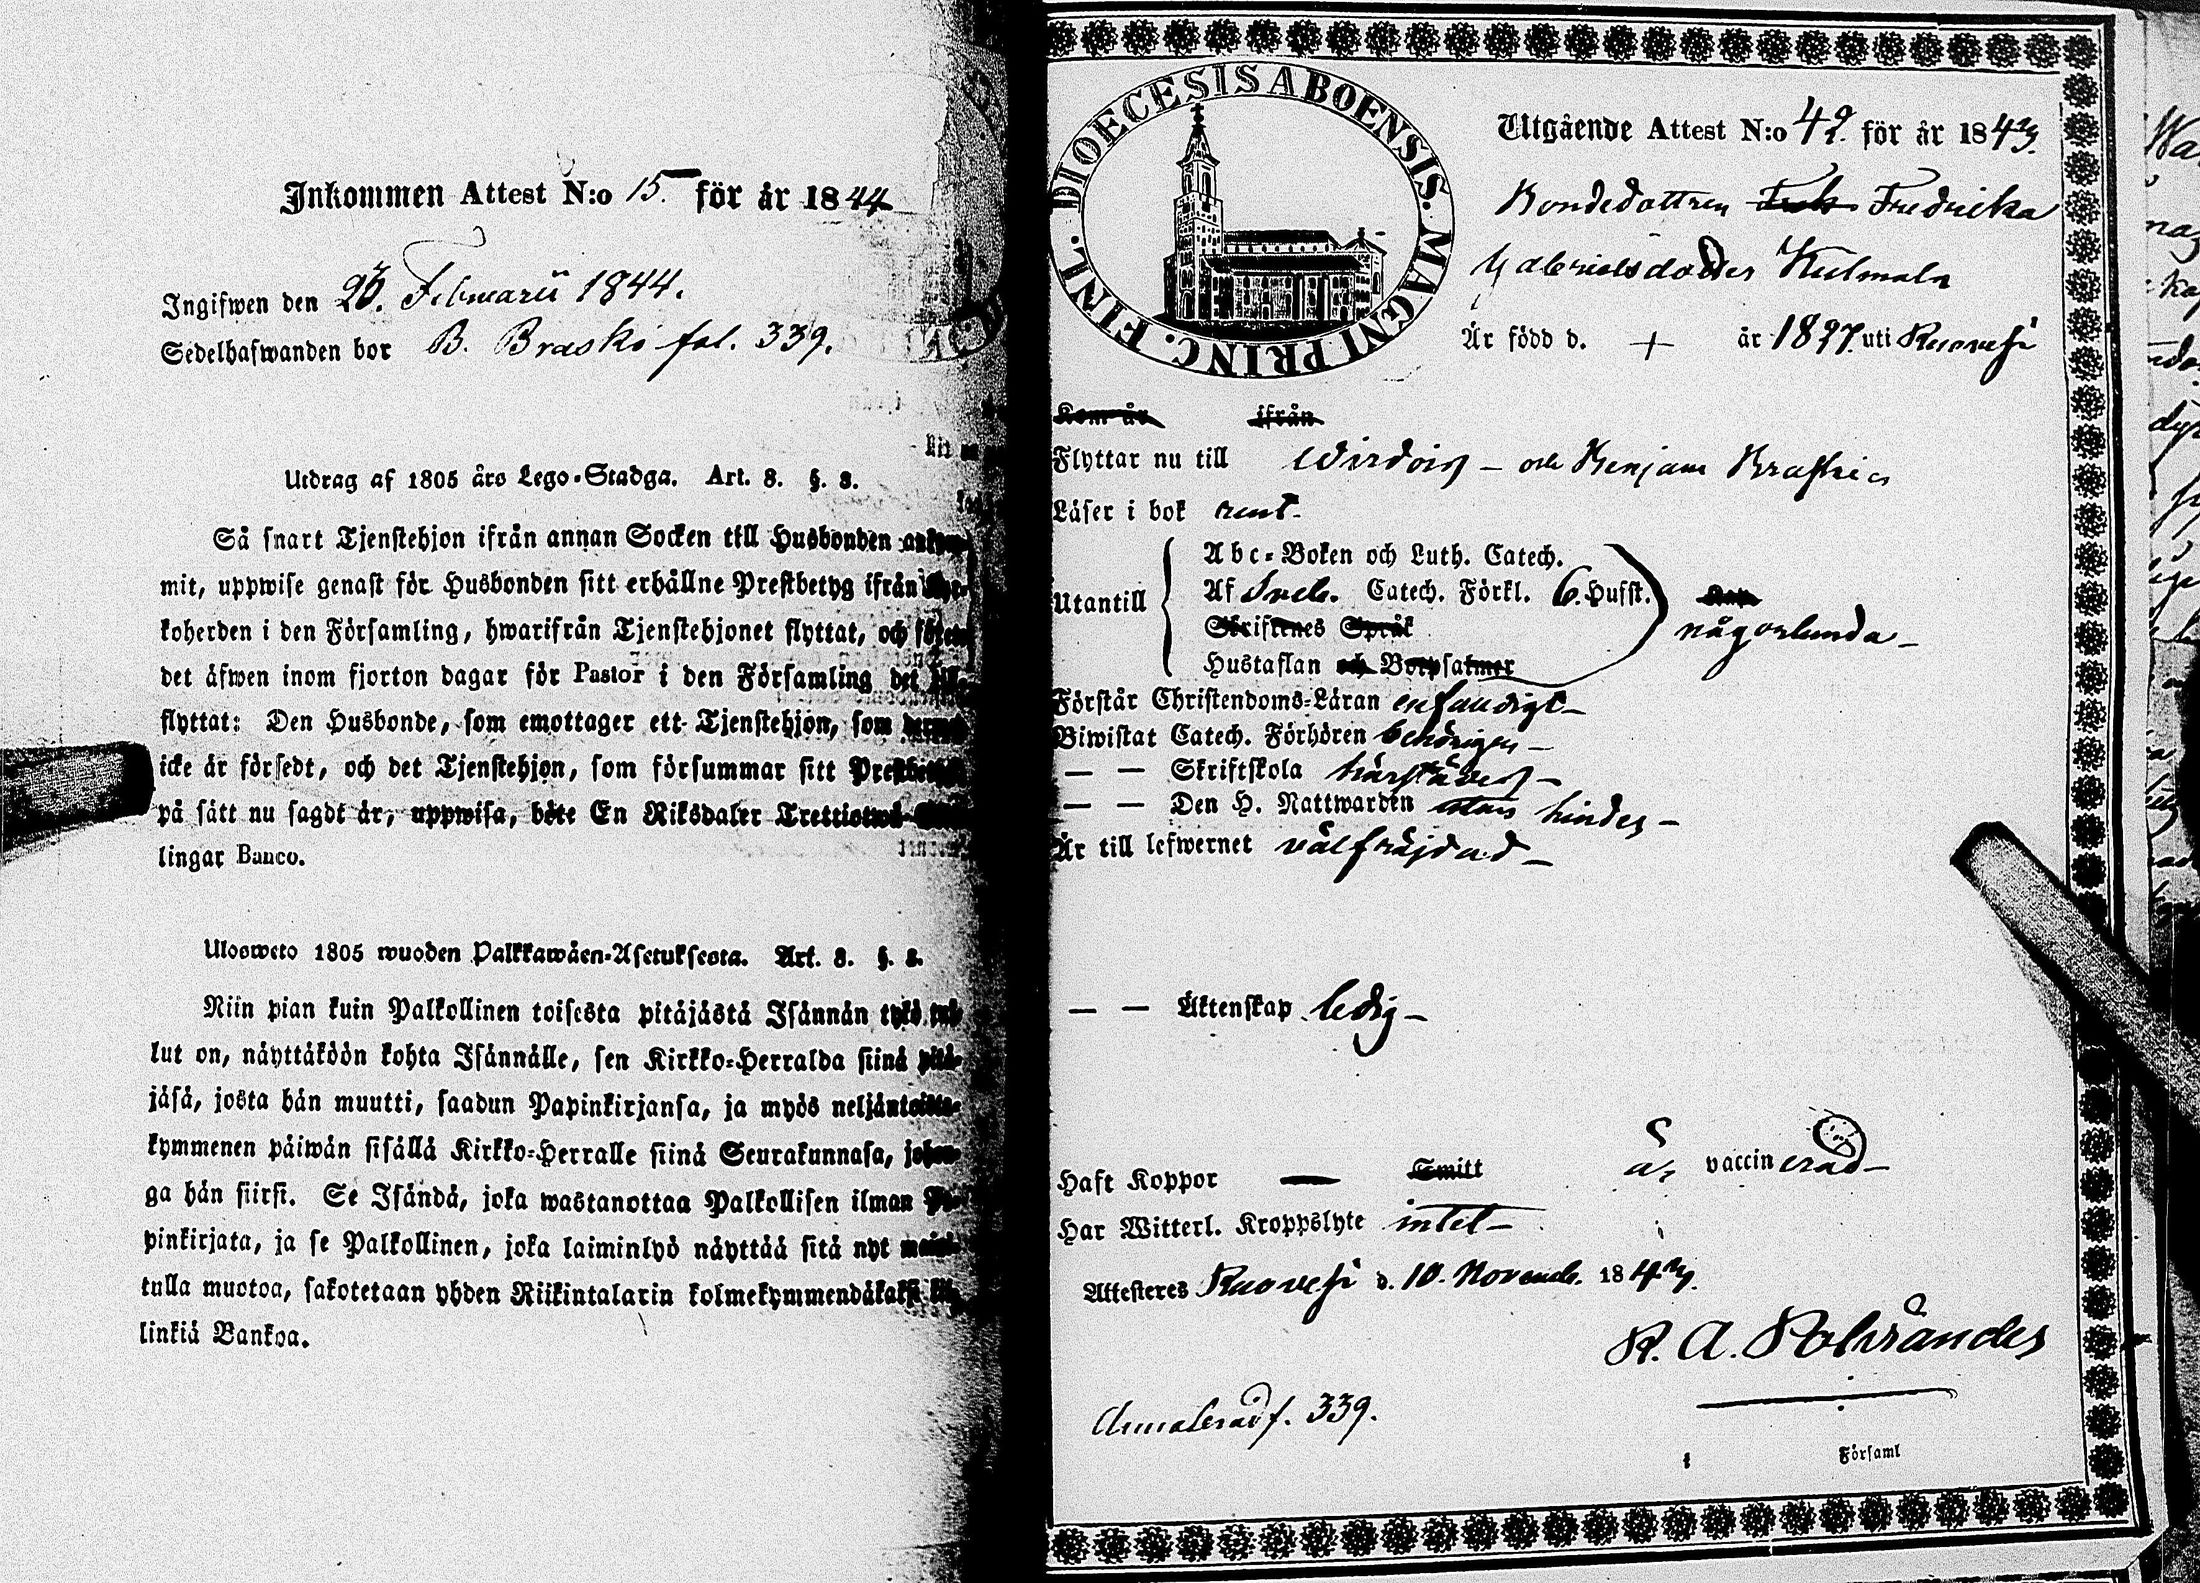 Inkommen Attest N:o 15. för år 1844
Ingifwen den 26. Februarii 1844.
Sedelhafwanden bor B. Braski fol. 339.
Utdrag af 1805 års Lego-Stadga. Art. 8. §. 8.
Så snart Tjenstehjon ifrån annan Socken till Husbonden ankom-
mit, uppwise genast för Husbonden sitt erhållne Prestbetyg ifrån Kyr-
koherden i den Församling, hwarifrån Tjenstehjonet flyttat, och förete
det äfwen inom fjorton dagar för Pastor i den Församling det
flyttat: Den Husbonde, som emottager ett Tjenstehjon, som
icke är försedt, och det Tjenstehjon, som försummar sitt Prestbetyg
på sätt nu sagdt är, uppwisa, böte En Riksdaler Trettiotwå
lingar Banco.
Ulosweto 1805 wuoden Palkkawäen-Asetuksesta. Art. 8. §. 8.
Niin pian kuin Palkollinen toisesta pitäjästä Isännän tykö tul-
lut on, näyttäköön kohta Isännälle, sen Kirkko-Herralda siinä pitä-
jäsä, josta hän muutti, saadun Papinkirjansa, ja myös neljäntoista-
kymmenen päiwän sisällä Kirkko-Herralle siinä Seurakunnasa, johon-
ga hän siirsi. Se Isändä, joka wastanottaa Palkollisen ilman Pa-
pinkirjata, ja se Palkollinen, joka laiminlyö näyttää sitä nyt
tulla muotoa, sakotetaan yhden Riikintalarin kolmekymmendäkaksi kil-
linkiä Bankoa.
DIOECESIS ABOENSIS. MAGNI PRINC. FINL.
Utgående Attest N:o 42. för år 1843.
Bondedottren Fredrika
Gabrielsdotter Kulmala
Är född d. + år 1827. uti Ruovesi
Kom år ifrån
Flyttar nu till Wirdois – och Benjam Braskis
Läser i bok rent–
Utantill
Abc-Boken och Luth. Catech.
Af Sveb. Catech. Förkl. 6. Hufst.
Skriftenes Språk
Hustaflan och Botpsalmer
någorlunda –
Förstår Christendoms-Läran enfaldigt –
Biwistat Catech. Förhören behörigen –
— — Skriftskola härstädes –
— — Den H. Nattwarden hindes –
Är till lefwernet välfräjdad –
— — Äktenskap ledig –
Haft Koppor — Smitt är vaccinerad –
Har Witterl. Kroppslyte intet –
Attesteres Ruovesi d. 10. Novemb. 1843.
Annoterad f. 339.
Församl